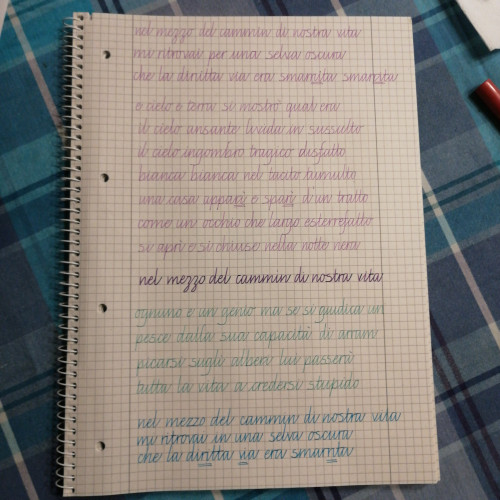 nel mezzo del cammin di nostra vita
mi ritrovai per una selva oscura
che la diritta via era smarrita smarrita
e cielo e terra si mostrò qual era
il cielo ansante livida in sussulto
il cielo ingombro tragico disfatto
bianca bianca nel tacito tumulto
una casa apparì e sparì d'un tratto
come un occhio che largo esterrefatto
si aprì e si chiuse nella notte nera
nel mezzo del cammin di nostra vita
ognuno è un genio ma se si giudica un
pesce dalla sua capacità di arram
picarsi sugli alberi lui passerà
tutta la vita a credersi stupido
nel mezzo del cammin di nostra vita
mi ritrovai in una selva oscura
che la diritta via era smarrita